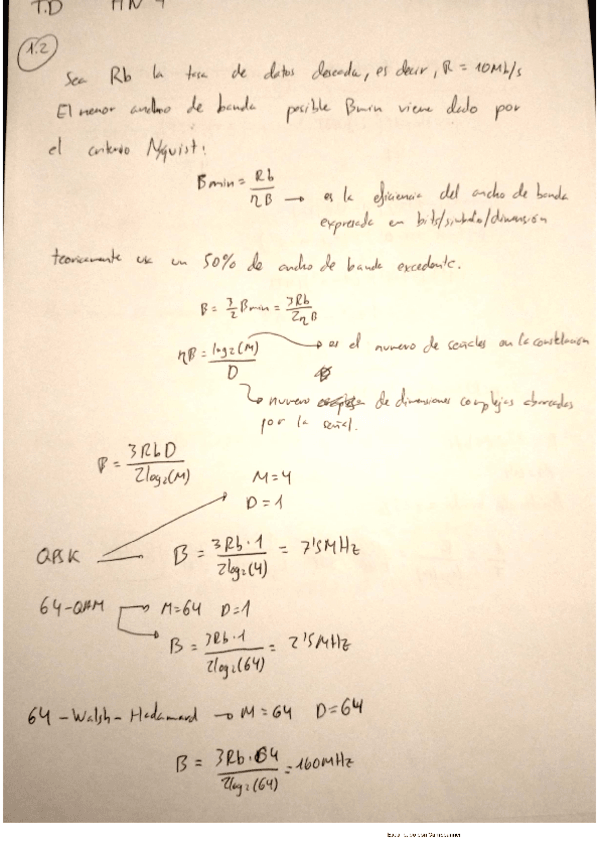 T.D HN 4
1.2
Sea Rb la tasa de datos deseada, es decir, R = 10Mb/s
El menor ancho de banda posible Bmin viene dado por
el criterio Nyquist:
Bmin = Rb / ηB → es la eficiencia del ancho de banda
expresada en bits/simbolo/dimensión
teoricamente un 50% de ancho de banda excedente.
B = 3/2 Bmin = 3Rb / 2ηB
ηB = log2(M) / D → es el numero de señales en la constelación
→ numero de dimensiones complejas abarcadas
por la señal.
B = 3RbD / 2log2(M)
M=4
D=1
QPSK B = 3Rb·1 / 2log2(4) = 7'5MHz
64-QAM → M=64 D=1
B = 3Rb·1 / 2log2(64) = 2'5MHz
64-Walsh-Hadamard → M=64 D=64
B = 3Rb·64 / 2log2(64) = 160MHz